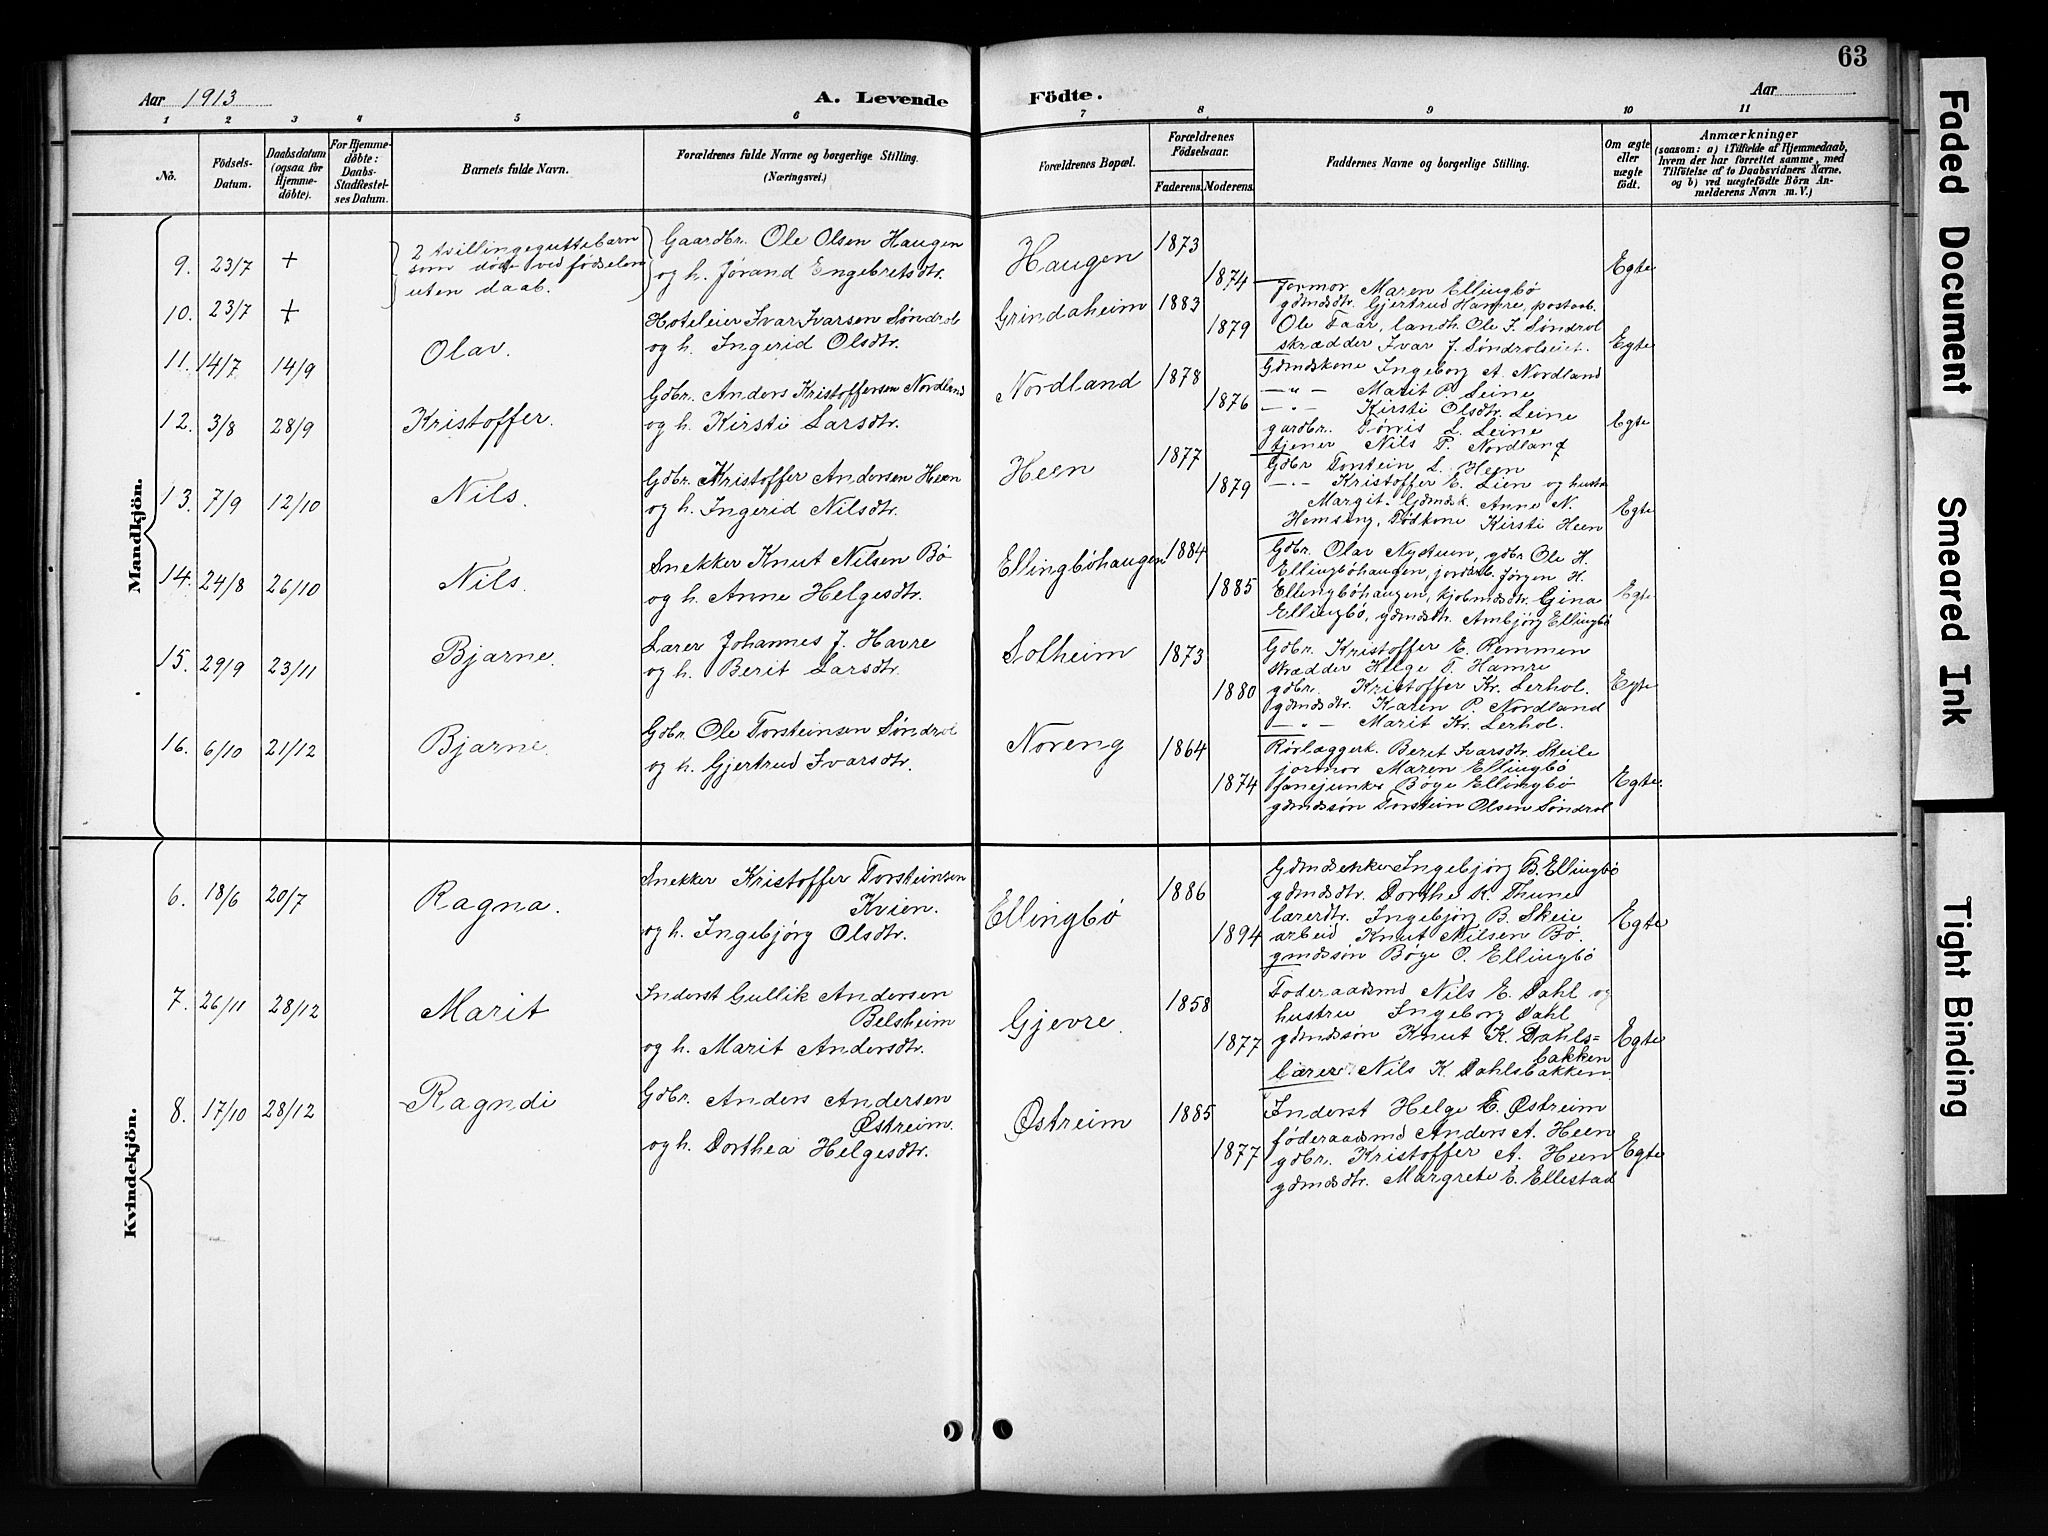 63
Aar 1913
A. Levende
Födte.
Aar
1 2 3 4 5 6 7 8 9 10 11
No.
Födsels-Datum.
Daabsdatum (ogsaa for Hjemmedöbte).
For Hjemmedöbte: Daabs-Stadfæstelses Datum.
Barnets fulde Navn.
Forældrenes fulde Navne og borgerlige Stilling.
(Næringsvei.)
Forældrenes Bopæl.
Forældrenes Födselsaar.
Faderens. Moderens.
Faddernes Navne og borgerlige Stilling.
Om ægte eller uægte födt.
Anmærkninger
(saasom: a) i Tilfælde af Hjemmedaab,
hvem der har forrettet samme, med
Tilföielse af to Daabsvidners Navne.
og b) ved uægtefödte Börn An-
melderens Navn m. V.)
Mandkjön.
9. 23/7 +
10. 23/7 +
2 tvillingeguttebarn
som døde ved fødselen
uten daab.
Gaardbr. Ole Olsen Haugen
og h. Jørand Engebretsdtr.
Haugen 1873
1874
Egte
11. 14/7 14/9 Olav.
Hoteleier Ivar Ivarsen Søndrol
og h. Ingerid Olsdtr.
Grindaheim 1883
1879
Farmor Maren Ellingbø
gdmdsdtr. Gjertrud Hamre, postaab.
Ole Faar, landh. Ole I. Søndrol
skrædder Ivar J. Søndrolseiet.
Egte
12. 3/8 28/9 Kristoffer.
Gdbr. Anders Kristoffersen Nordland
og h. Kirsti Larsdtr.
Nordland 1878
1876
Gdmdskone Ingeborg A. Nordland
— " — Marit P. Leine
— " — Kirsti Olsdtr. Leine
gardbr. Jørris L. Leine
tjener Nils T. Nordland
Egte
13. 7/9 12/10 Nils.
Gdbr. Kristoffer Andersen Heen
og h. Ingerid Nilsdtr.
Heen 1877
1879
Gdbr Torstein L. Heen
— " — Kristoffer E. Lien og hustr
Margit. Gdmdsk. Anne N.
Hemsing, Födkone Kirsti Heen
Egte
14. 24/8 26/10 Nils.
Snekker Knut Nilsen Bø
og h. Anne Helgesdtr.
Ellingbøhaugen 1884
1885
Gdbr. Olav Nystuen, gdbr Ole H.
Ellingbøhaugen, jordarb. Jørgen H.
Ellingbøhaugen, kjøbmdsdtr. Gina
Ellingbø, gdmdsdtr. Ambjørg Ellingbø
Egte
15. 29/9 23/11 Bjarne.
Lærer Johannes J. Havre
og h. Berit Larsdtr.
Solheim 1873
1880
Gdbr. Kristoffer E. Remmen
skrædder Helge T. Hamre
gdbr. Kristoffer Kr. Lerhol.
gdmdsdtr. Karen P. Nordland
— " — Marit Kr. Lerhol.
Egte
16. 6/10 21/12 Bjarne.
Gdbr. Ole Torsteinsen Søndrol
og h. Gjertrud Ivarsdtr.
Noreng 1864
1874
Rørlæggerk. Berit Ivarsdtr. Skeile
jormor Maren Ellingbø
fanejunker Bøge Ellingbø
gdmdssøn Torstein Olsen Søndrol
Egte.
Kvindekjön.
6. 18/6 20/7 Ragna.
Snekker Kristoffer Torsteinsen
Kvien.
og h. Ingebjørg Olsdtr.
Ellingbø 1886
1894
Gdmdsenke Ingebjørg B. Ellingbø
gdmdsdtr. Dorthe K. Thune
lærerdtr. Ingebjørg B. Skeie
arbeid Knut Nilsen Bø.
gmdssøn Bøge O. Ellingbø
Egte
7. 26/11 28/12 Marit
Inderst Gullik Andersen
Belsheim
og h. Marit Andersdtr.
Gjevre. 1858
1877
Foderaadsmd Nils E. Dahl og
hustru Ingeborg Dahl
gdmdssøn Knut K. Dahls=
bakken
lærer Nils K. Dahlsbakken.
Egte
8. 17/10 28/12 Ragndi
Gdbr. Anders Andersen
Østreim.
og h. Dorthea Helgesdtr.
Østreim 1885
1877
Inderst Helge E. Østreim
føderaadsmd Anders A. Heen
gdbr. Kristoffer A. Heen
gdmdsdtr. Margrete E. Ellestad
Egte
Faded Document
Smeared Ink
Tight Binding